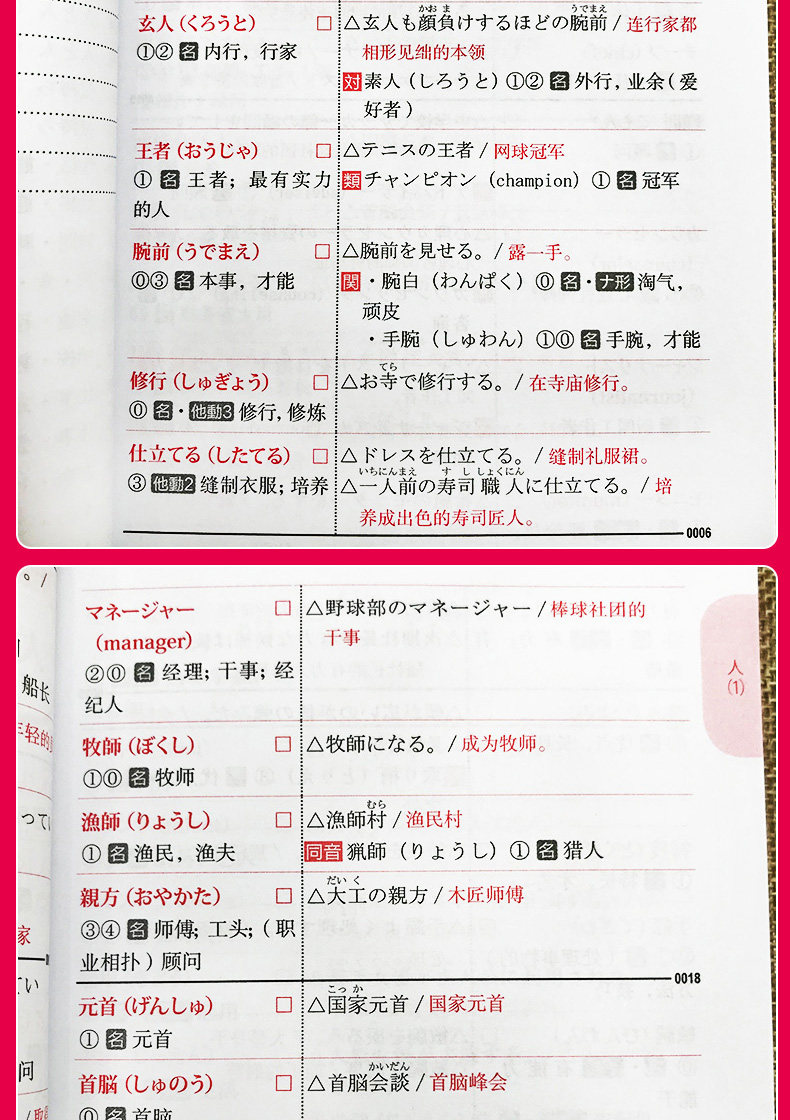 玄人（くろうと） □
①② 名 内行，行家
かおま うでまえ
△玄人も顔負けするほどの腕前 / 连行家都
相形见绌的本领
対 素人（しろうと）①② 名 外行，业余（爱
好者）
王者（おうじゃ） □
① 名 王者；最有实力
的人
△テニスの王者 / 网球冠军
類 チャンピオン（champion）① 名 冠军
腕前（うでまえ） □
⓪③ 名 本事，才能
△腕前を見せる。/ 露一手。
関 ・腕白（わんぱく）⓪ 名・ナ形 淘气，
顽皮
・手腕（しゅわん）①⓪ 名 手腕，才能
修行（しゅぎょう） □
⓪ 名・他動3 修行，修炼
てら
△お寺で修行する。/ 在寺庙修行。
仕立てる（したてる） □
③ 他動2 缝制衣服；培养
△ドレスを仕立てる。/ 缝制礼服裙。
いちにんまえ すししょくにん
△一人前の寿司職人に仕立てる。/ 培
养成出色的寿司匠人。
0006
マネージャー □
（manager）
②⓪ 名 经理；干事；经
纪人
△野球部のマネージャー / 棒球社团的
干事
人
(1)
船长
年轻的
牧師（ぼくし） □
①⓪ 名 牧师
△牧師になる。/ 成为牧师。
漁師（りょうし） □
① 名 渔民，渔夫
むら
△漁師村 / 渔民村
同音 猟師（りょうし）① 名 猎人
親方（おやかた） □
③④ 名 师傅；工头；（职
业相扑）顾问
だいく
△大工の親方 / 木匠师傅
0018
家
元首（げんしゅ） □
① 名 元首
こっか
△国家元首 / 国家元首
首脳（しゅのう） □
⓪ 名 首脑
かいだん
△首脳会談 / 首脑峰会
问